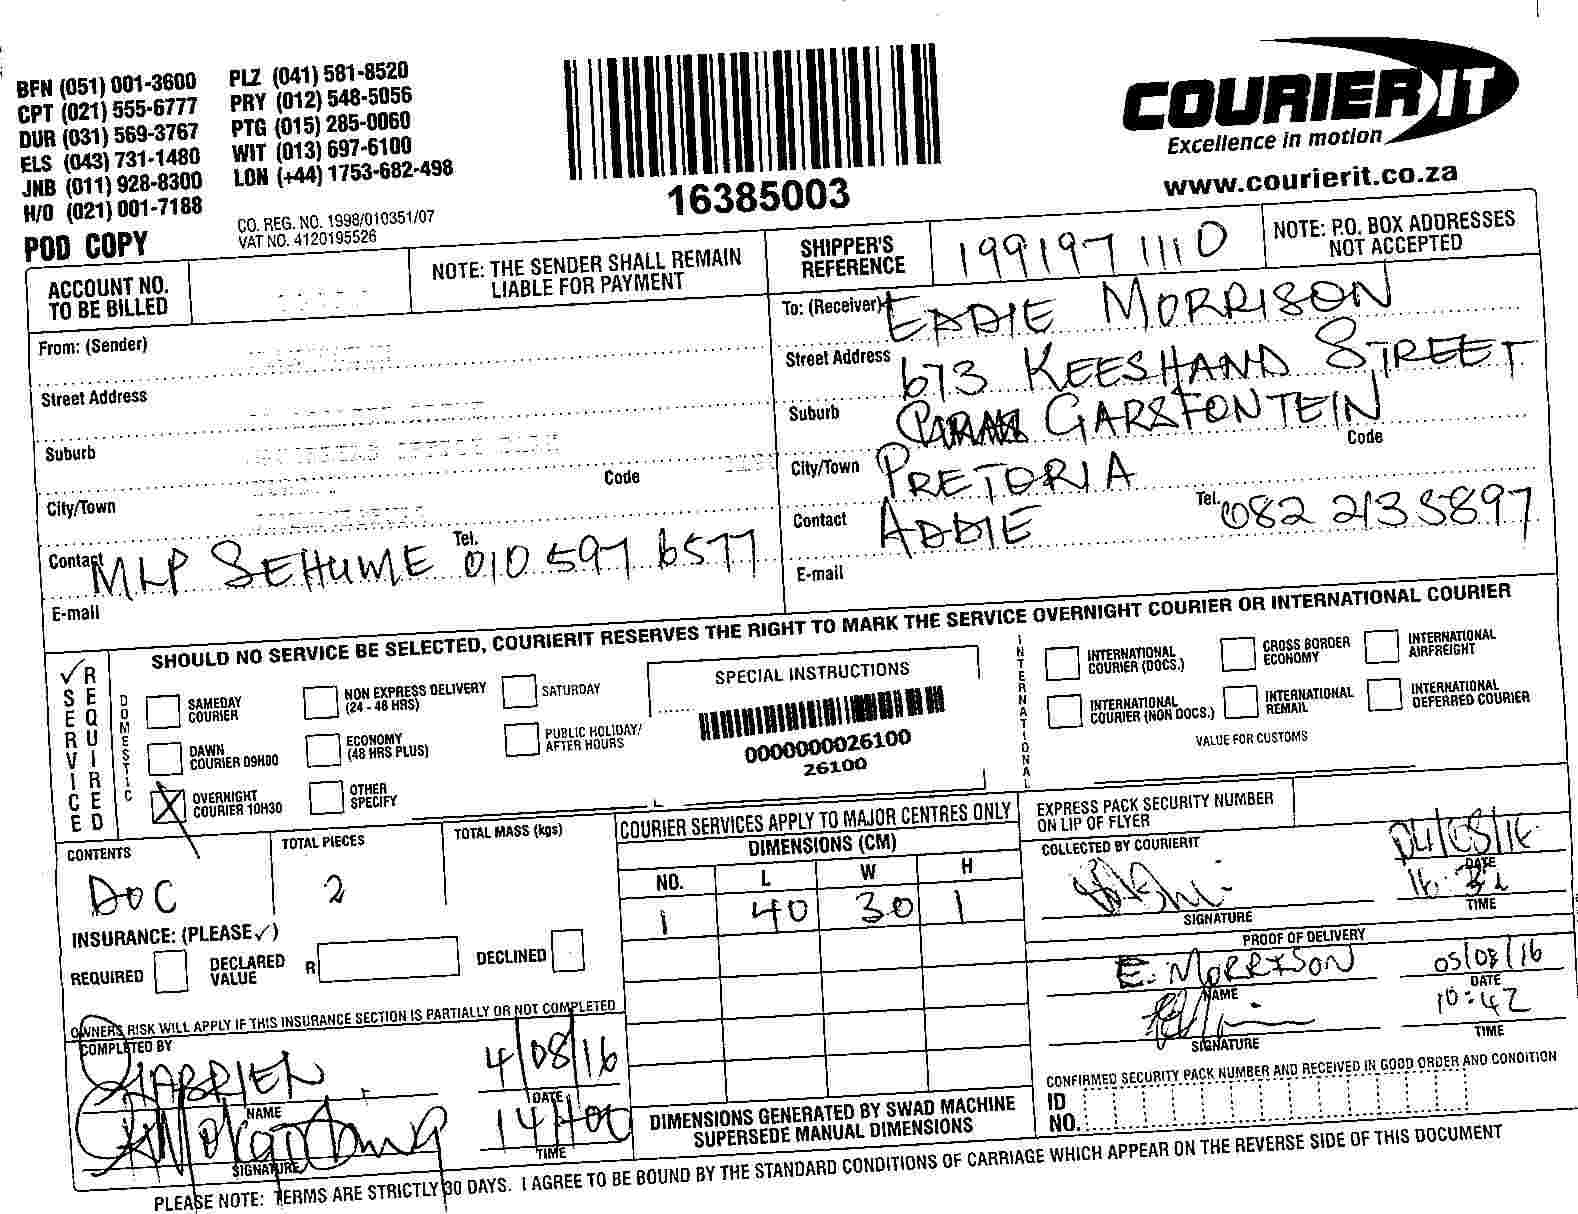 BFN (051) 001-3600 PLZ (041) 581-8520
CPT (021) 555-6777 PRY (012) 548-5056
DUR (031) 569-3767 PTG (015) 285-0060
ELS (043) 731-1480 WIT (013) 697-6100
JNB (011) 928-8300 LON (+44) 1753-682-498
H/O (021) 001-7188
CO. REG. NO. 1998/010351/07
VAT NO. 4120195526
POD COPY
16385003
COURIER IT
Excellence in motion
www.courierit.co.za
ACCOUNT NO.
TO BE BILLED
NOTE: THE SENDER SHALL REMAIN
LIABLE FOR PAYMENT
SHIPPER'S
REFERENCE
199197 1110
NOTE: P.O. BOX ADDRESSES
NOT ACCEPTED
From: (Sender)
Street Address
Suburb
Code
City/Town
Contact MLP SEHUME Tel. 010 597 6577
E-mail
To: (Receiver) EDDIE MORRISON
Street Address 673 KEESHAND STREET
Suburb GARSFONTEIN
Code
City/Town PRETORIA
Contact ADDIE Tel. 082 213 5897
E-mail
SHOULD NO SERVICE BE SELECTED, COURIERIT RESERVES THE RIGHT TO MARK THE SERVICE OVERNIGHT COURIER OR INTERNATIONAL COURIER
✓ SERVICE REQUIRED
DOMESTIC
SAMEDAY
COURIER
NON EXPRESS DELIVERY
(24 - 48 HRS)
SATURDAY
DAWN
COURIER 09H00
ECONOMY
(48 HRS PLUS)
PUBLIC HOLIDAY/
AFTER HOURS
OVERNIGHT
COURIER 10H30
OTHER
SPECIFY
SPECIAL INSTRUCTIONS
0000000026100
26100
INTERNATIONAL
INTERNATIONAL
COURIER (DOCS.)
CROSS BORDER
ECONOMY
INTERNATIONAL
AIRFREIGHT
INTERNATIONAL
COURIER (NON DOCS.)
INTERNATIONAL
REMAIL
INTERNATIONAL
DEFERRED COURIER
VALUE FOR CUSTOMS
CONTENTS
DOC
TOTAL PIECES
2
TOTAL MASS (kgs)
INSURANCE: (PLEASE ✓)
REQUIRED
DECLARED
VALUE
R
DECLINED
OWNERS RISK WILL APPLY IF THIS INSURANCE SECTION IS PARTIALLY OR NOT COMPLETED
COMPLETED BY
4/08/16
NAME
DATE
14H00
SIGNATURE
TIME
COURIER SERVICES APPLY TO MAJOR CENTRES ONLY
DIMENSIONS (CM)
NO. L W H
1 40 30 1
DIMENSIONS GENERATED BY SWAD MACHINE
SUPERSEDE MANUAL DIMENSIONS
EXPRESS PACK SECURITY NUMBER
ON LIP OF FLYER
COLLECTED BY COURIERIT
04/08/16
DATE
SIGNATURE
TIME
PROOF OF DELIVERY
E. MORRISON 05/08/16
NAME
DATE
10:42
SIGNATURE
TIME
CONFIRMED SECURITY PACK NUMBER AND RECEIVED IN GOOD ORDER AND CONDITION
ID
NO.
PLEASE NOTE: TERMS ARE STRICTLY 30 DAYS. I AGREE TO BE BOUND BY THE STANDARD CONDITIONS OF CARRIAGE WHICH APPEAR ON THE REVERSE SIDE OF THIS DOCUMENT